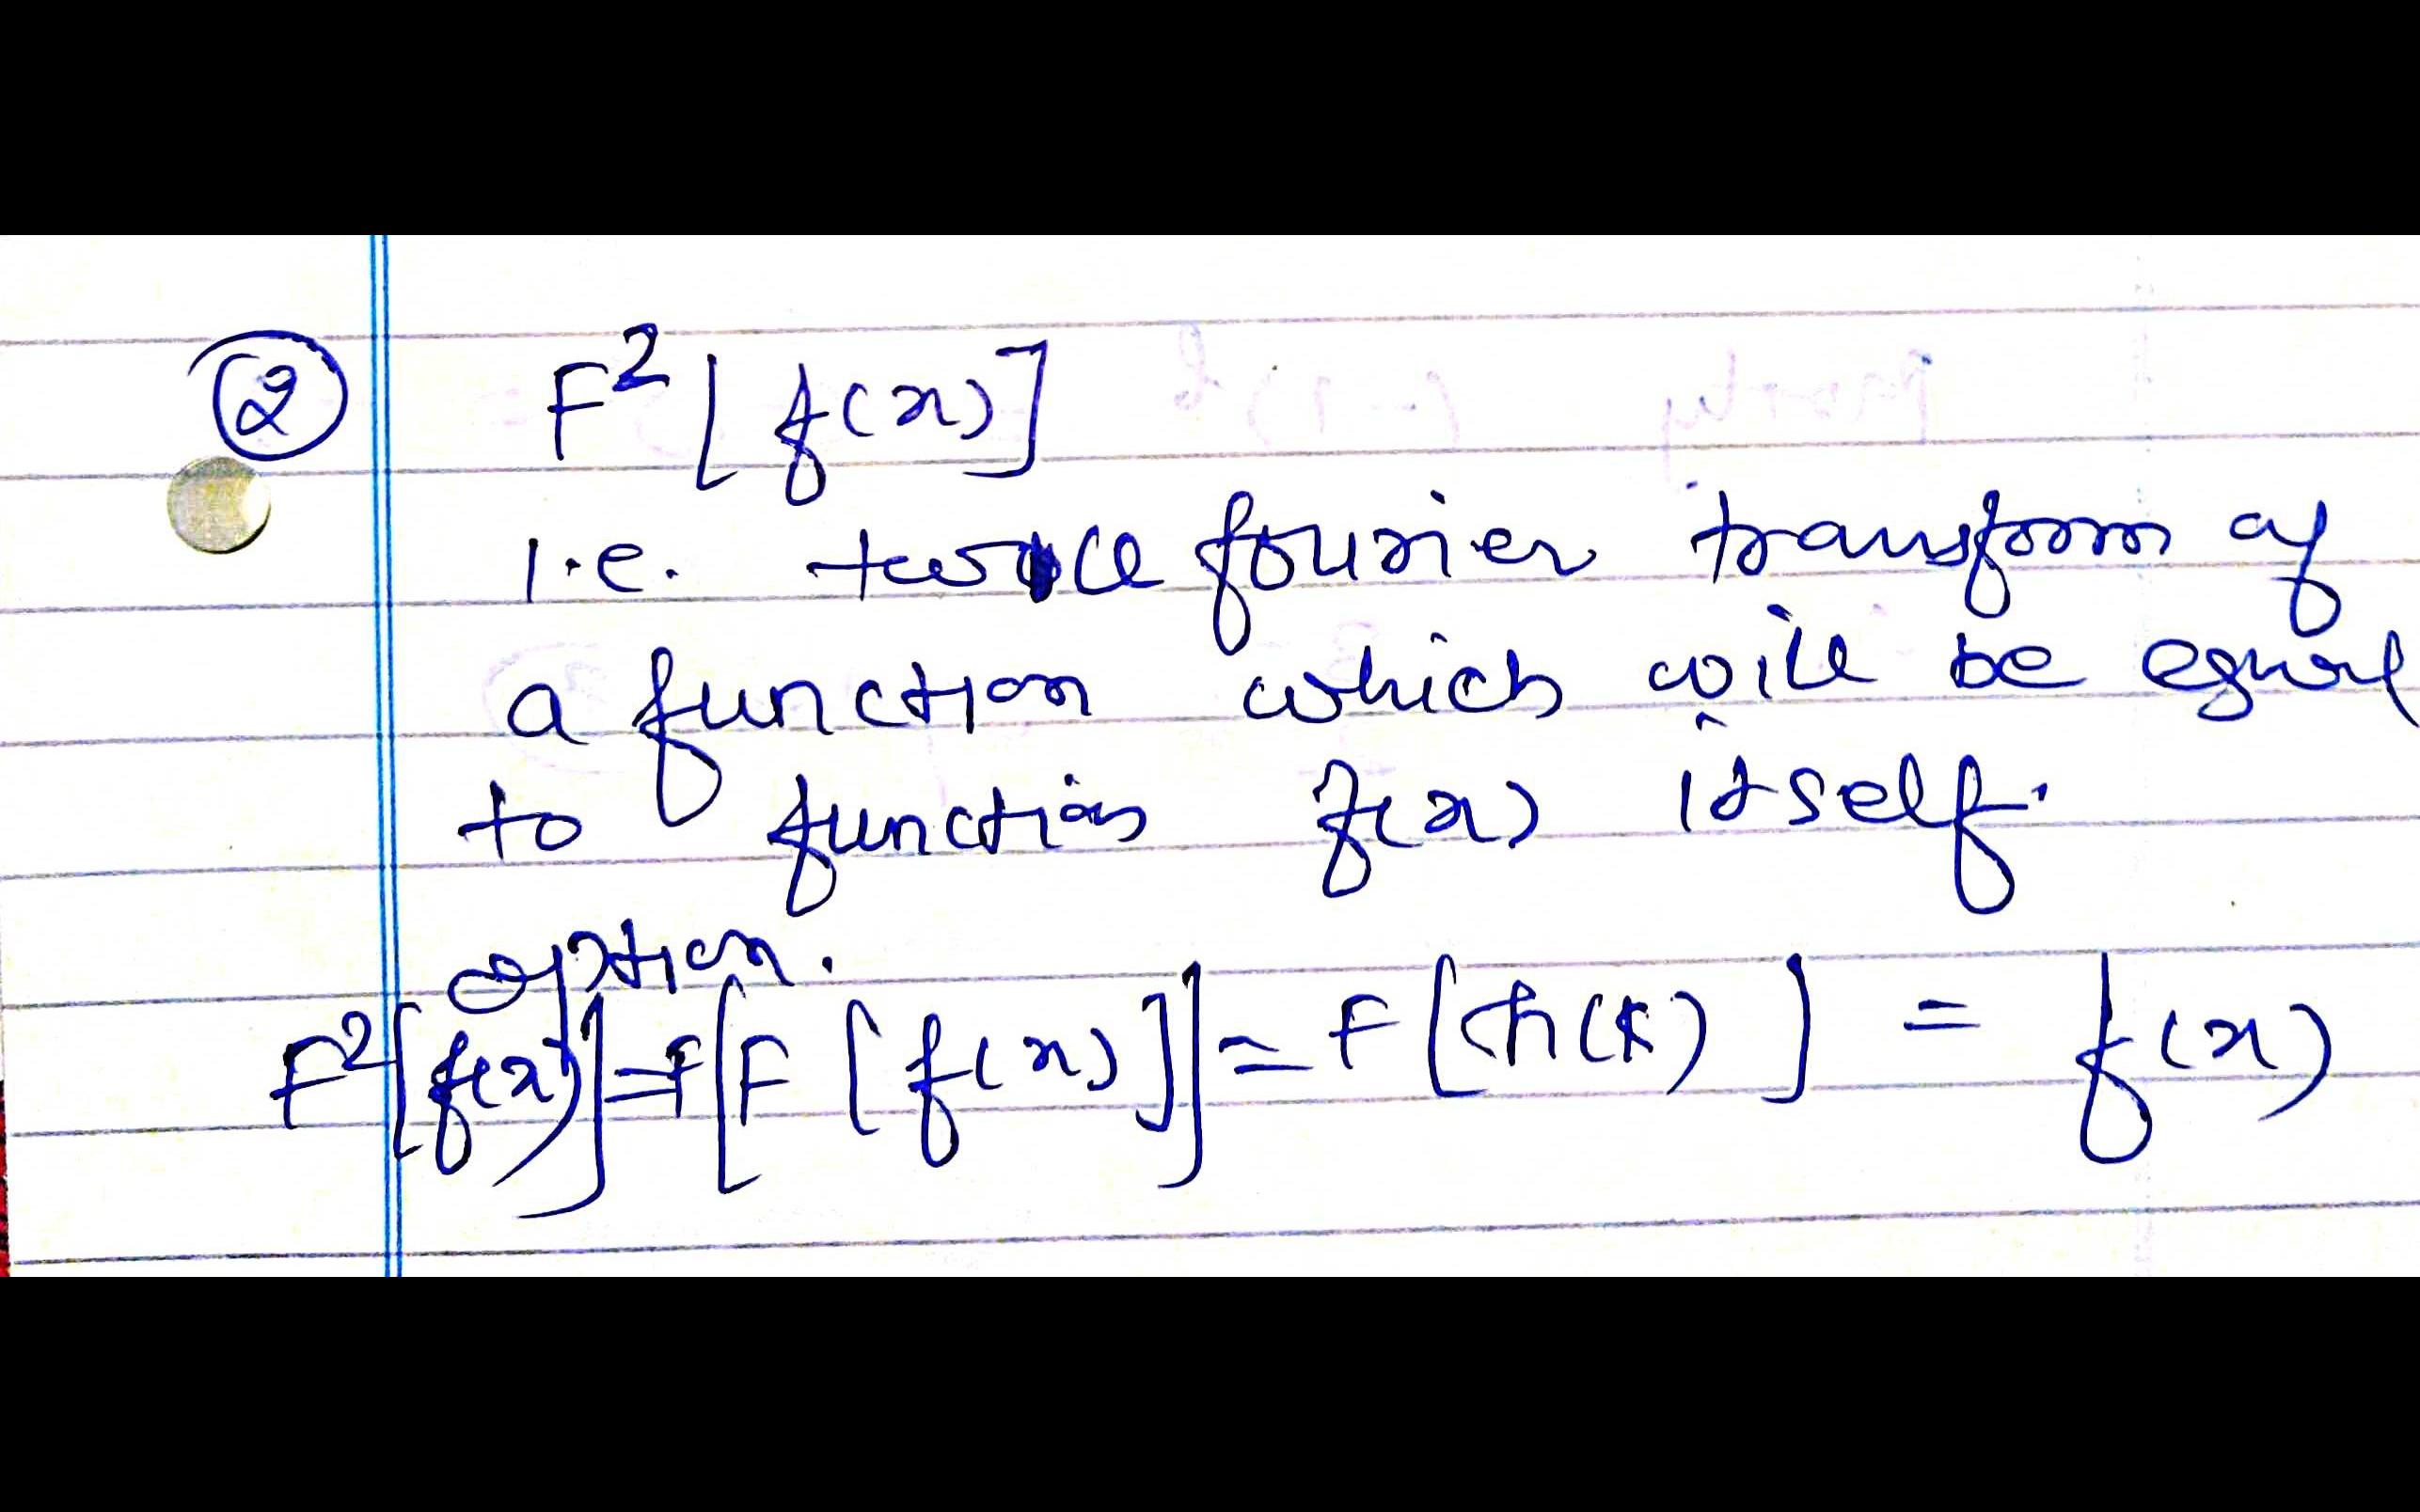 ② F²[f(x)]
i.e. twice fourier transform of
a function which will be equal
to function f(x) itself.
option.
F²[f(x)] = F[F[f(x)]] = F[h(k)] = f(x)